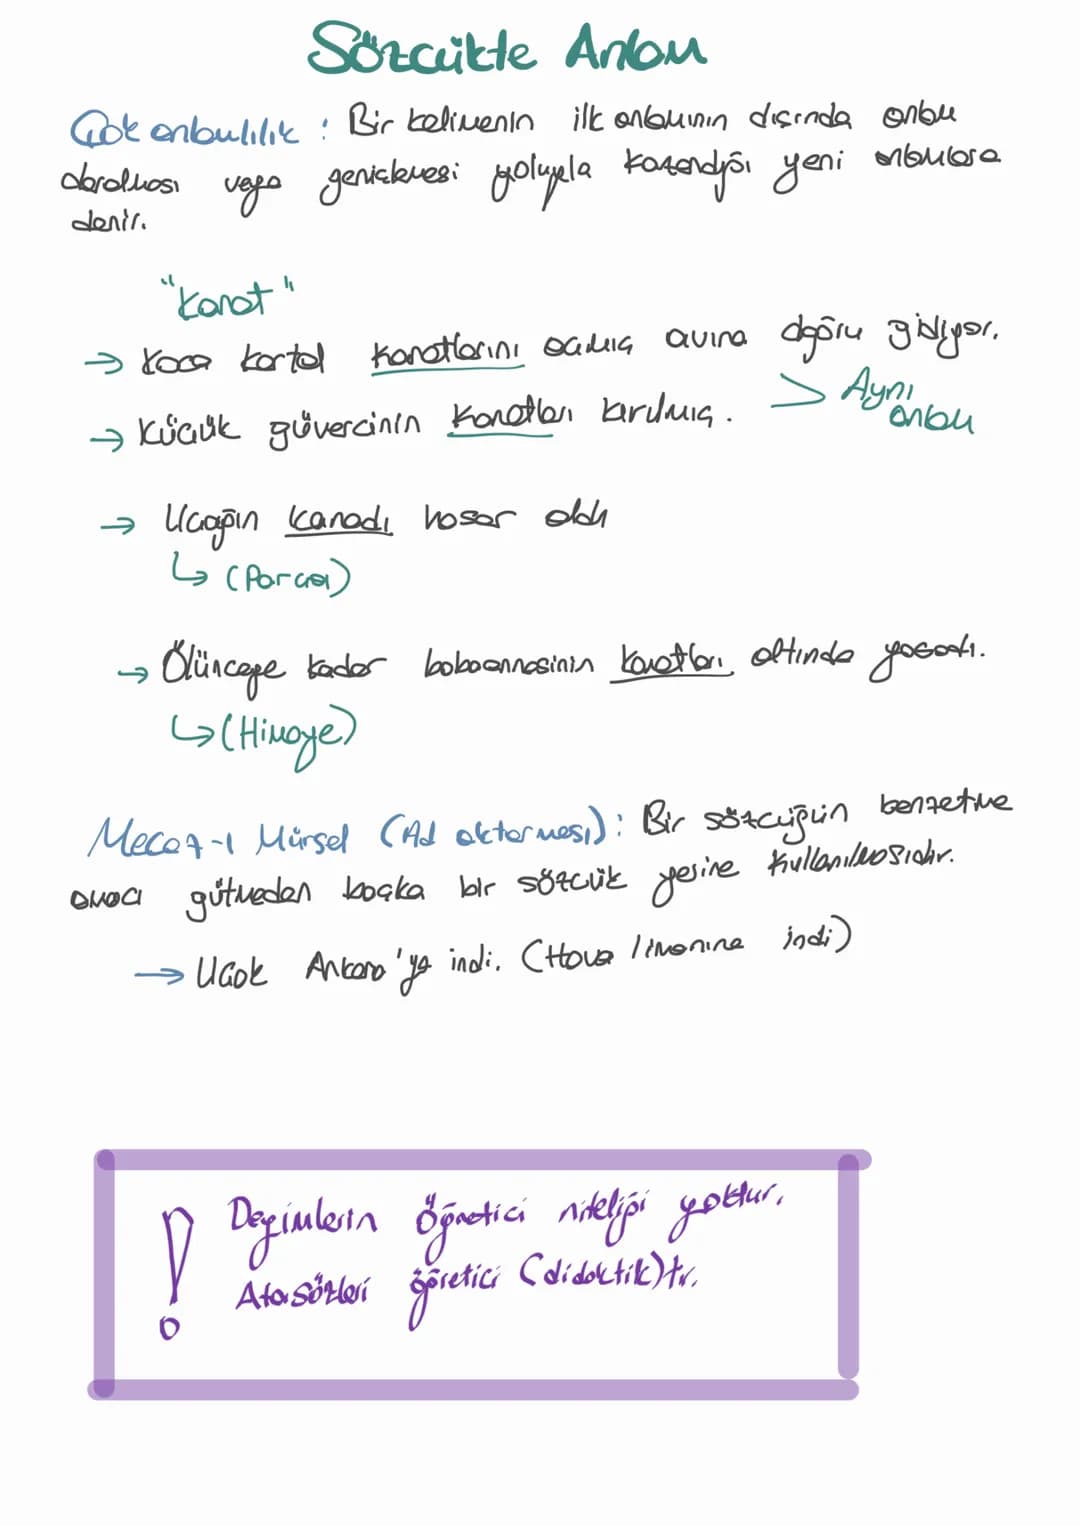 Sözcükte Anlam
Çok anlamlılık : Bir kelimenin ilk anlamının dışında anlam
daralması veya genişlemesi yoluyla kazandığı yeni anlamlara
denir.
"Kanat"
→ Koca kartal kanatlarını açmış avına doğru gidiyor.
→ Küçük güvercinin kanatları kırılmış. > Aynı anlam
→ Uçağın kanadı hasar aldı
↳ (Parçası)
→ Ölünceye kadar babaannesinin kanatları altında yaşadı.
↳ (Himaye)
Mecaz-ı Mürsel (Ad aktarması): Bir sözcüğün benzetme
amacı gütmeden başka bir sözcük yerine kullanılmasıdır.
→ Uçak Ankara'ya indi. (Hava limanına indi)
! Deyimlerin öğretici niteliği yoktur.
Atasözleri öğretici (didaktik)tir.